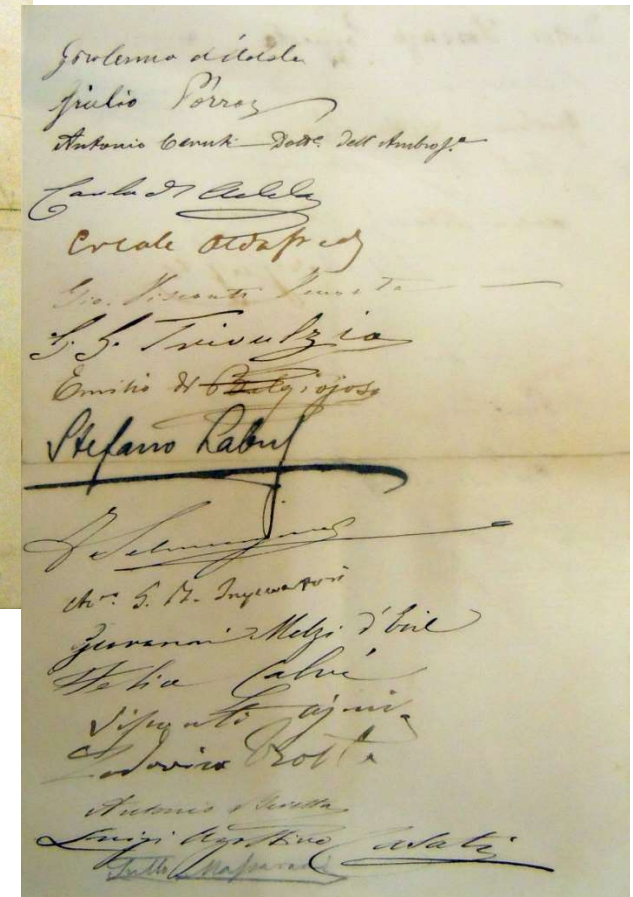 Girolamo d'Adda
Giulio Porro
Antonio Ceruti Dott.e dell'Ambros.a
Carlo d'Adda
Ercole Oldofredi
Gio. Visconti Venosta
G. G. Trivulzio
Emilio di Belgiojoso
Stefano Labus
Giovanni Melzi d'Eril
Felice Calvi
Visconti
Lodovico Trotti
Antonio
Luigi Agostino Casati
Tullo Massarani